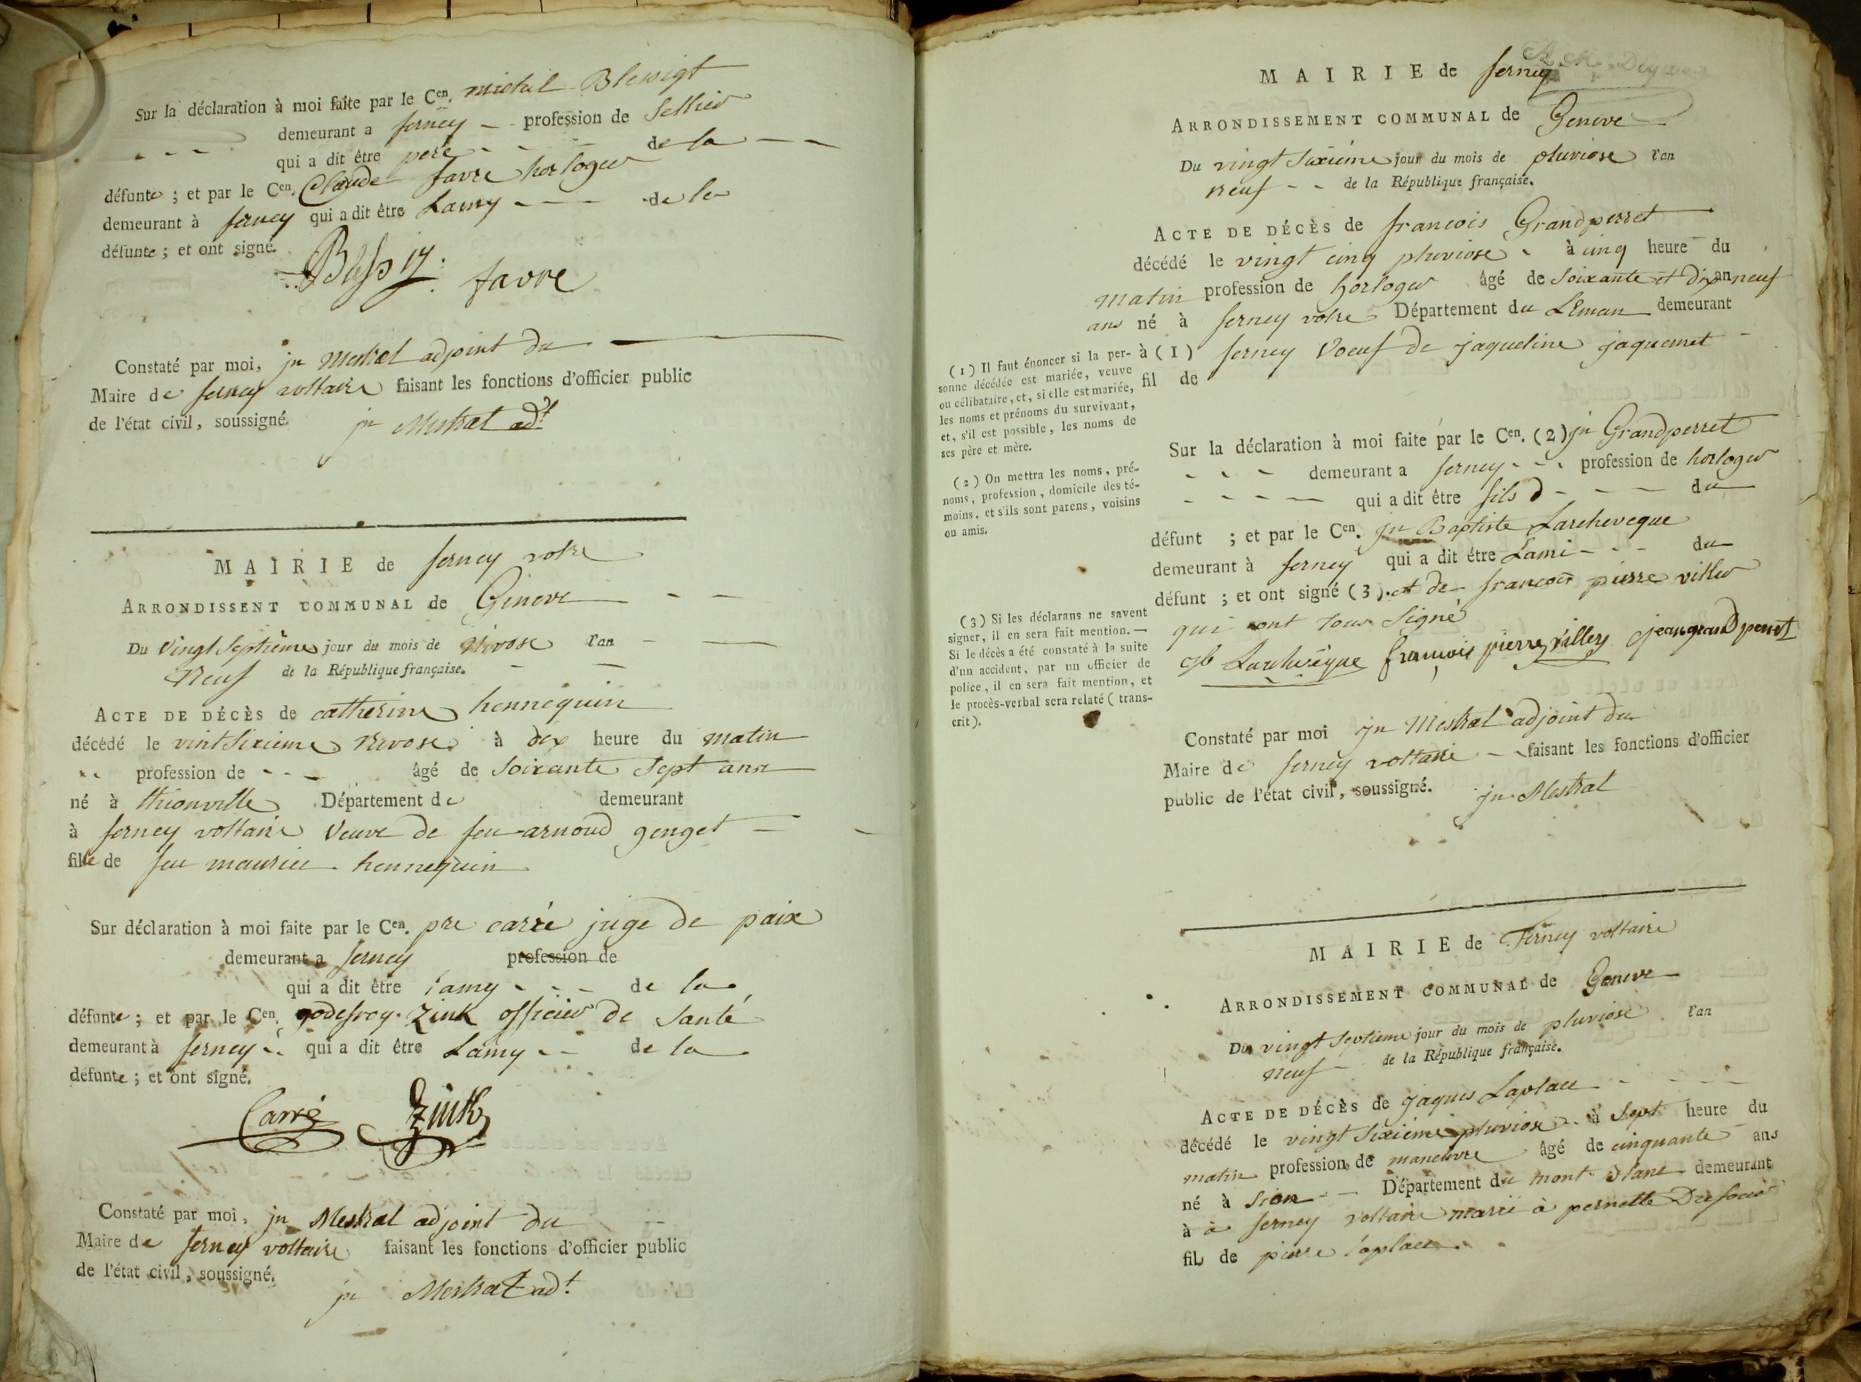 Sur la déclaration à moi faite par le Cen. michel Blessigt
- - - demeurant a ferney - profession de Sellier
qui a dit être pere - - - de la - -
défunte ; et par le Cen. Claude favre horloger
demeurant à ferney qui a dit être Lamy - - - de la
défunte ; et ont signé.
favre
Constaté par moi, jn Mestral adjoint du
Maire de ferney voltaire faisant les fonctions d'officier public
de l'état civil, soussigné. jn Mestral adt
MAIRIE de ferney votre
ARRONDISSENT COMMUNAL de Geneve - -
Du vingt Septième jour du mois de Nivose l'an - -
Neuf de la République française. - -
ACTE DE DÉCÈS de catherine hennequin
décédé le vint Sixieme Nivose à dix heure du matin
profession de - - - âgé de Soixante Sept ans
né à thionville Département de demeurant
à ferney voltaire Veuve de feu arnoud genget -
fille de feu maurice hennequin
Sur déclaration à moi faite par le Cen. pre carré juge de paix
demeurant a ferney profession de
qui a dit être Lamy - - - de la
défunte ; et par le Cen. godefroy Zink officier de Santé
demeurant à ferney qui a dit être Lamy - - de la
défunte ; et ont signé.
Carré Zink
Constaté par moi, jn Mestral adjoint du
Maire de ferney voltaire faisant les fonctions d'officier public
de l'état civil, soussigné.
jn Mestral adt.
MAIRIE de ferney
ARRONDISSEMENT COMMUNAL de Geneve
Du vingt Sixiéme jour du mois de pluviose l'an
Neuf - - de la République française.
ACTE DE DÉCÈS de francois Grandperret
décédé le vingt cinq pluviose à cinq heure du
matin profession de horloger âgé de Soixante et dix neuf
ans né à ferney votre Département du Léman demeurant
à (1) ferney Voeuf de jaqueline jaquemet
fil de
(1) Il faut énoncer si la per-
sonne décédée est mariée, veuve
ou célibataire, et, si elle est mariée,
les noms et prénoms du survivant,
et, s'il est possible, les noms de
ses père et mère.
(2) On mettra les noms, pré-
noms, profession, domicile des té-
moins, et s'ils sont parens, voisins
ou amis.
(3) Si les déclarans ne savent
signer, il en sera fait mention. —
Si le décès a été constaté à la suite
d'un accident, par un officier de
police, il en sera fait mention, et
le procès-verbal sera relaté (trans-
crit).
Sur la déclaration à moi faite par le Cen. (2) jn Grandperret
- - - demeurant a ferney - - profession de horloger
- - - - qui a dit être fils - - - du
défunt ; et par le Cen. jn Baptiste Larcheveque
demeurant à ferney qui a dit être Lami - - - du
défunt ; et ont signé (3). et de francois pierre viller
qui ont tous Signé
Larchevêque françois pierre villers jean grandperret
Constaté par moi jn Mestral adjoint du
Maire de ferney voltaire - faisant les fonctions d'officier
public de l'état civil, soussigné. jn Mestral
MAIRIE de Ferney voltaire
ARRONDISSEMENT COMMUNAL de Geneve
Du vingt Septieme jour du mois de pluviose l'an
Neuf - de la République française.
ACTE DE DÉCÈS de jaques Laplace - - - -
décédé le vingt Sixieme pluviose à Sept heure du
matin profession de manoeuvre âgé de cinquante ans
né à Sion - - Département du mont blanc demeurant
à à ferney voltaire marié à pernette
fil de pierre Laplace